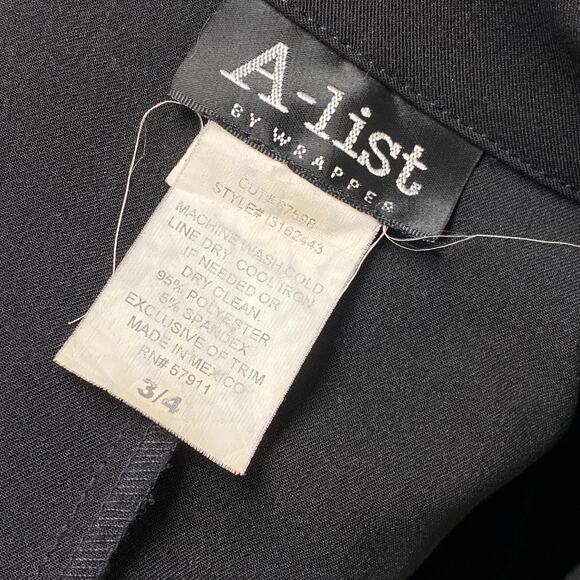 A-list
BY WRAPPER
CUT# 8759B
STYLE# 13162443
MACHINE WASH COLD
LINE DRY. COOL IRON
IF NEEDED OR
DRY CLEAN.
95% POLYESTER
5% SPANDEX
EXCLUSIVE OF TRIM
MADE IN MEXICO
RN# 57911
3/4